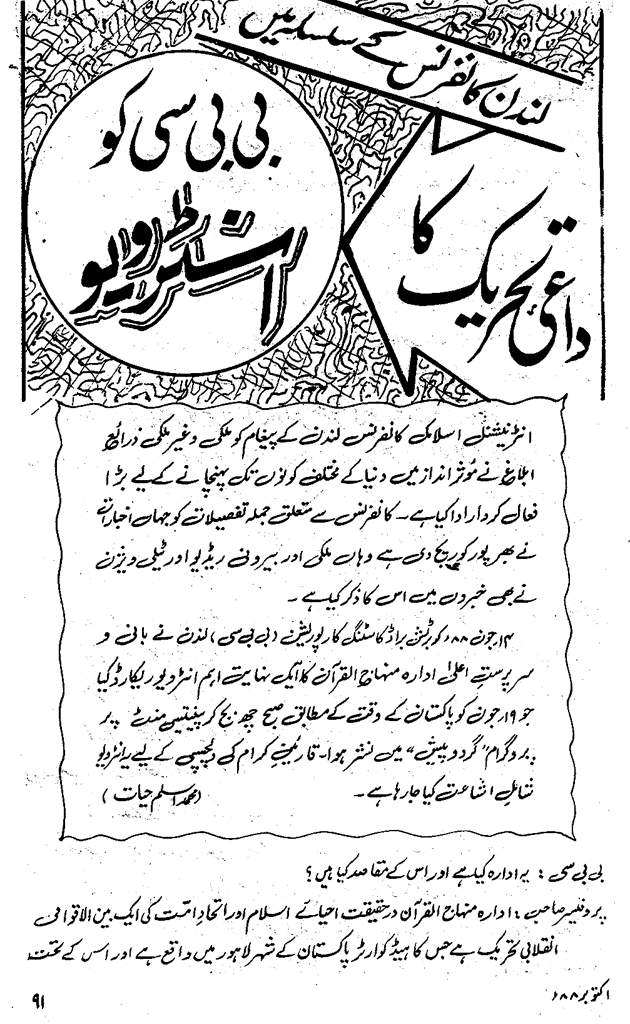 لندن کانفرنس کے سلسلہ میں
داعیٔ تحریک کا
بی بی سی کو
انٹرویو
انٹرنیشنل اسلامک کانفرنس لندن کے پیغام کو ملکی و غیر ملکی ذرائع
ابلاغ نے مؤثر انداز میں دنیا کے مختلف کونوں تک پہنچانے کے لیے بڑا
فعال کردار ادا کیا ہے۔ کانفرنس سے متعلق جملہ تفصیلات کو جہاں اخبارات
نے بھرپور کوریج دی ہے وہاں ملکی اور بیرونی ریڈیو اور ٹیلی ویژن
نے بھی خبروں میں اس کا ذکر کیا ہے۔
۱۴ جون ۸۸ء کو برٹش براڈ کاسٹنگ کارپوریشن (بی بی سی) لندن نے بانی و
سرپرست اعلیٰ ادارہ منہاج القرآن کا ایک نہایت اہم انٹرویو ریکارڈ کیا
جو ۱۹ جون کو پاکستان کے وقت کے مطابق صبح چھ بج کر پینتیس منٹ پر
پروگرام "گرد و پیش" میں نشر ہوا۔ قارئین کرام کی دلچسپی کے لیے یہ انٹرویو
شامل اشاعت کیا جا رہا ہے۔ (محمد اسلم حیات)
بی بی سی : یہ ادارہ کیا ہے اور اس کے مقاصد کیا ہیں؟
پروفیسر صاحب : ادارہ منہاج القرآن درحقیقت احیائے اسلام اور اتحاد امت کی ایک بین الاقوامی
انقلابی تحریک ہے جس کا ہیڈ کوارٹر پاکستان کے شہر لاہور میں واقع ہے اور اس کے تحت
اکتوبر ۸۸ء
۹۱